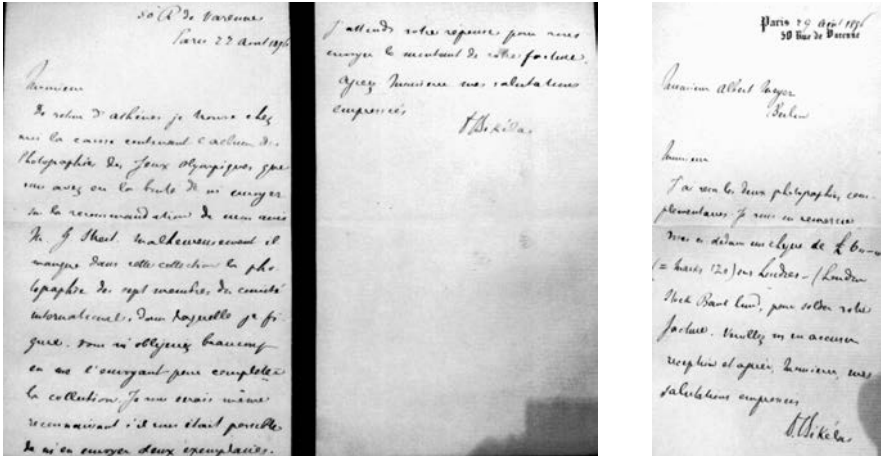 50 R de Varenne
Paris 27 Aout 1896
Monsieur
De retour d'Athènes je trouve chez
moi la caisse contenant l'album des
Photographies des Jeux Olympiques que
vous avez eu la bonté de m'envoyer
sur la recommandation de mon ami
Mr G Streit. Malheureusement il
manque dans cette collection la pho-
tographie des sept membres du comité
international, dans laquelle je fi-
gure. Vous m'obligerez beaucoup
en me l'envoyant pour completer
la collection. Je vous serais même
reconnaissant s'il vous était possible
de m'en envoyer deux exemplaires.
J'attends votre reponse pour vous
envoyer le montant de votre facture.
Agreez Monsieur mes salutations
empressées
D Bikélas
Paris 29 Aout 1896
50 Rue de Varenne
Monsieur Albert Meyer
Berlin
Monsieur
J'ai recu les deux photographies com-
plementaires. Je vous en remercie
Voici ci dedans un cheque de £ 6
(= Marks 120) sur Londres - (London
Stock Bank Limd), pour solder votre
facture. Veuillez m'en accuser
reception et agréer, Monsieur, mes
salutations empressées
D. Bikélas